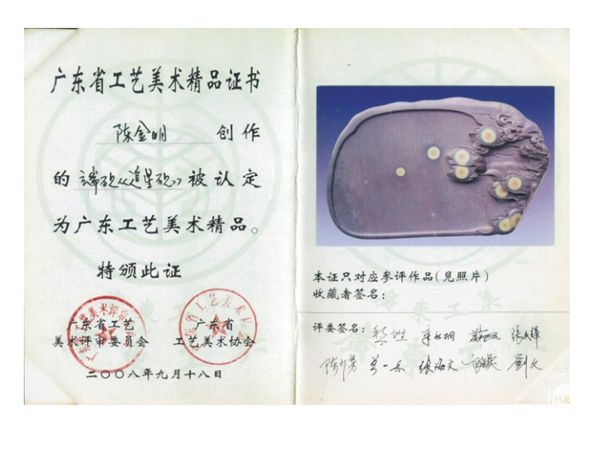 广东省工艺美术精品证书
陈金明 创作
的 端砚《追星砚》被认定
为广东工艺美术精品。
特颁此证
广东省工艺
美术评审委员会
广东省
工艺美术协会
二〇〇八年九月十八日
本证只对应参评作品(见照片)
收藏者签名:
评委签名: